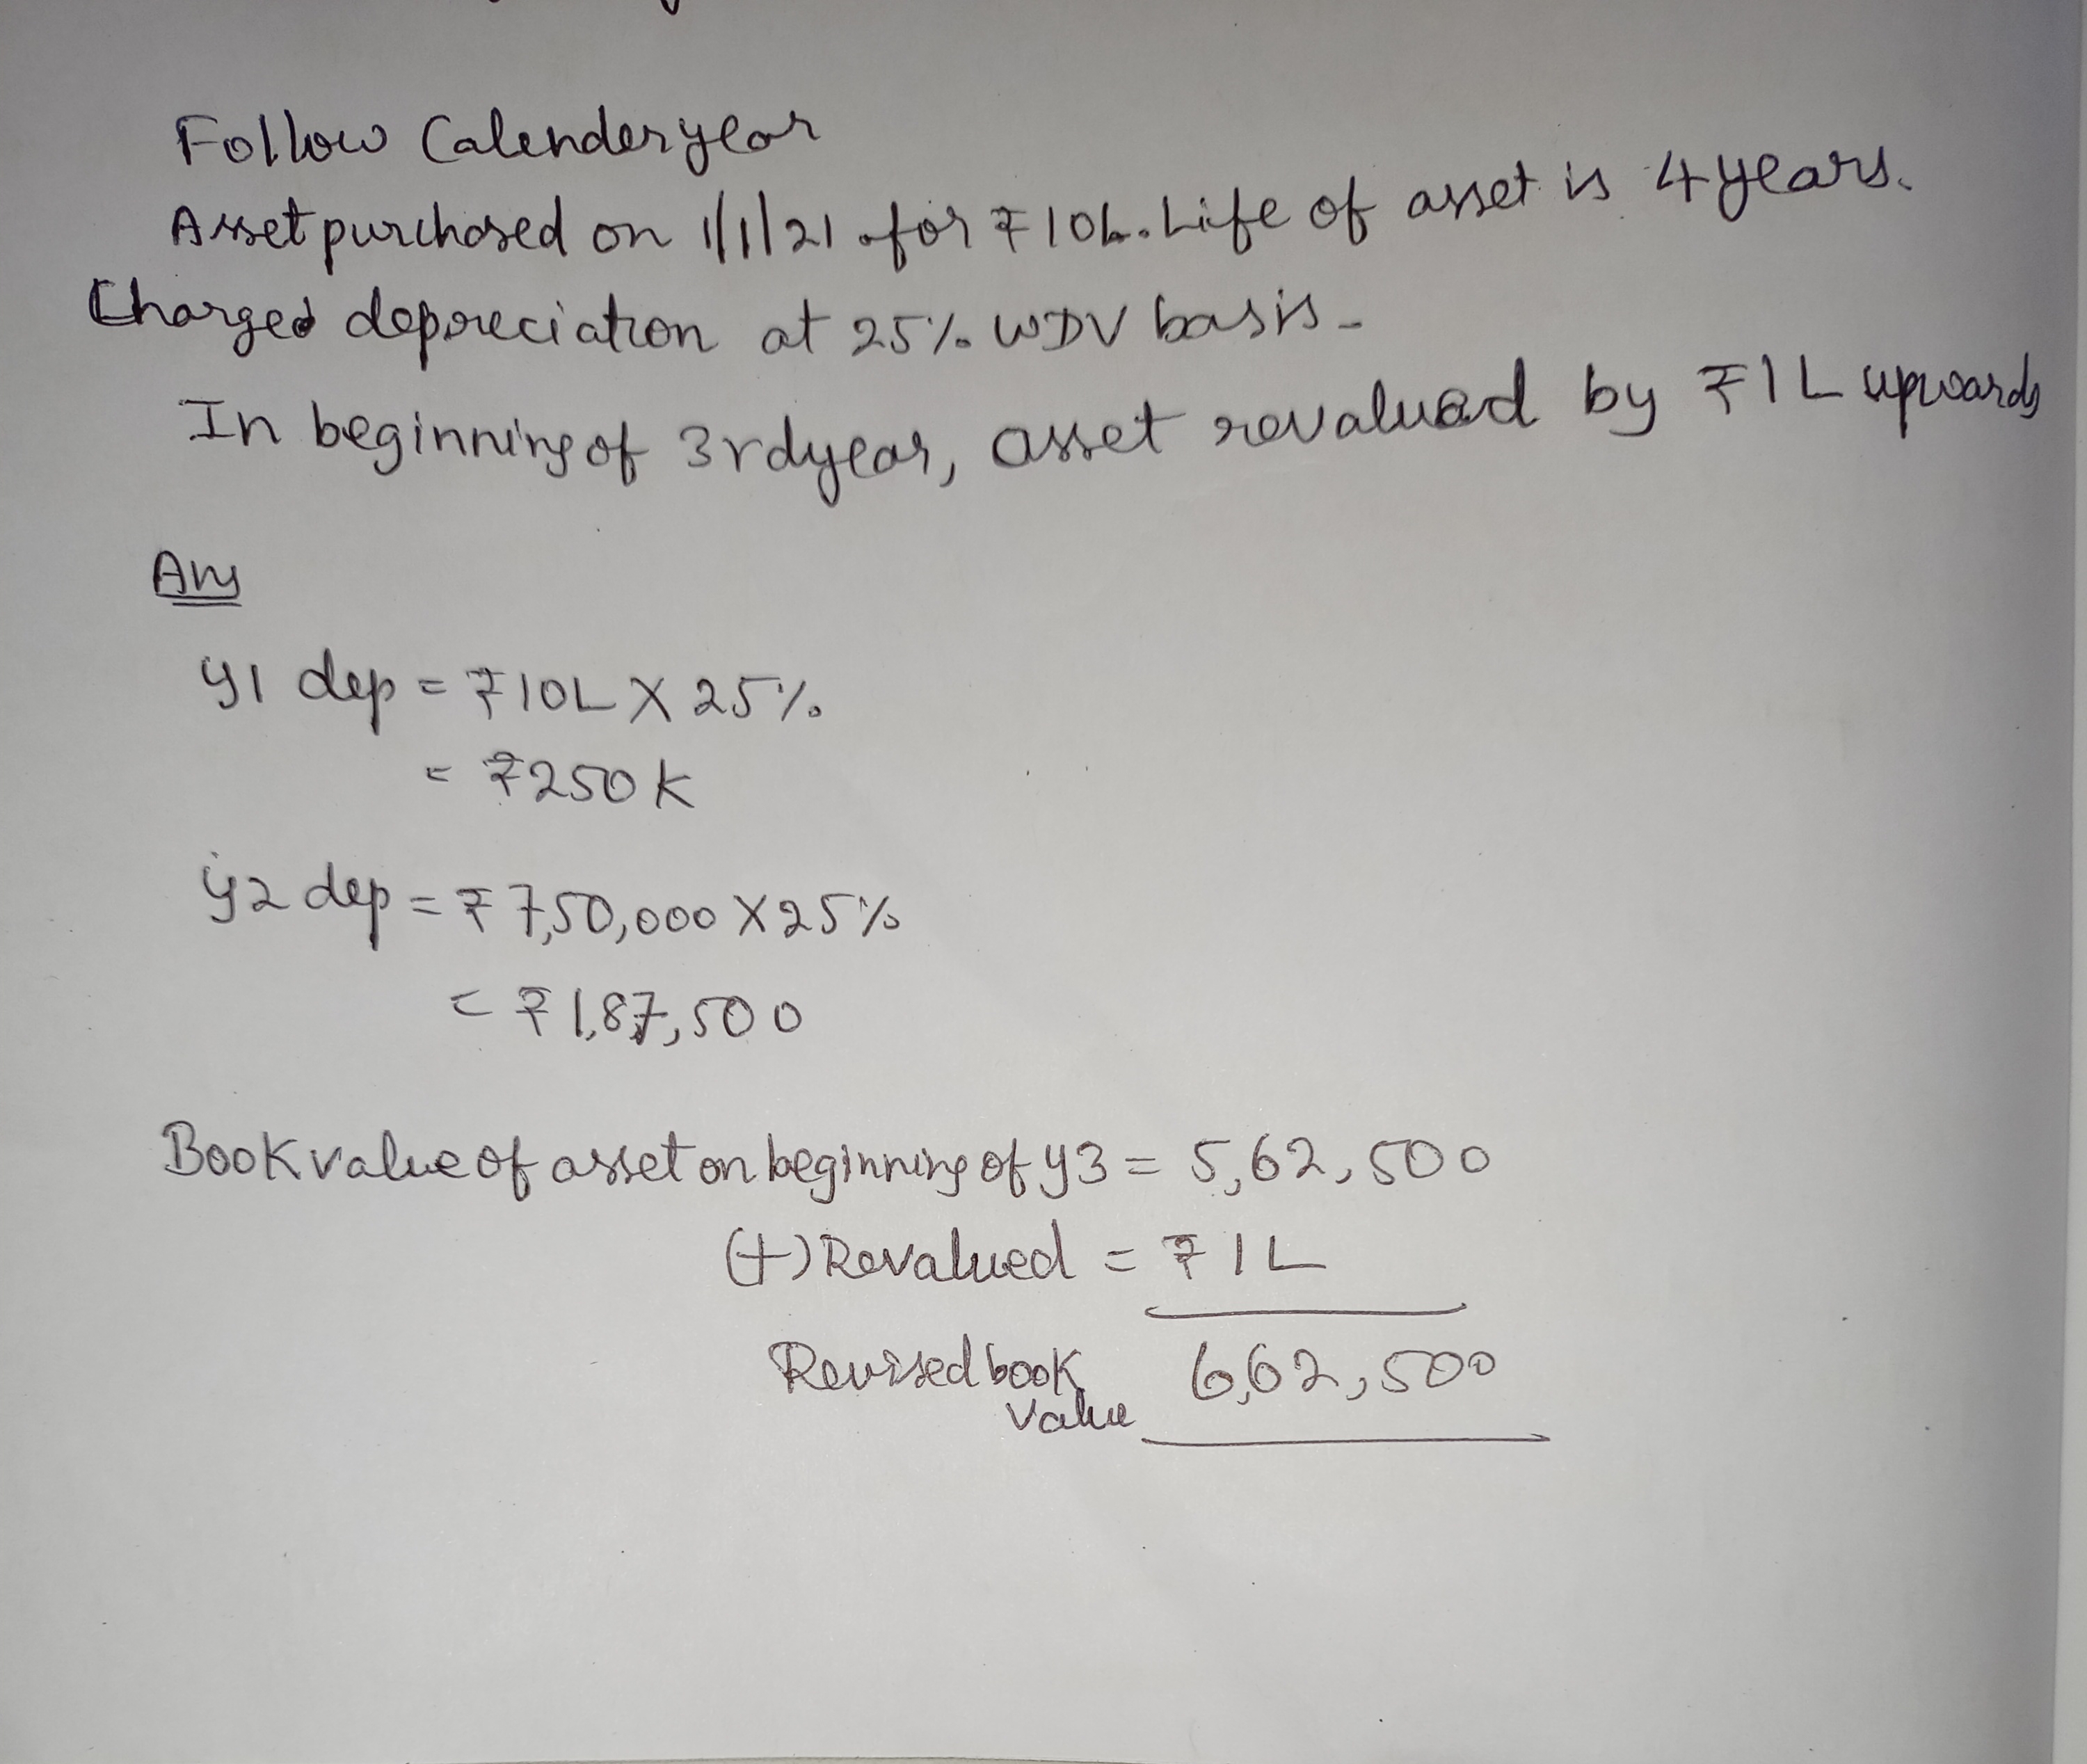 Follow Calender year
Asset purchased on 1/1/21 for ₹10L. Life of asset is 4 years.
Charged depreciation at 25% WDV basis.
In beginning of 3rd year, asset revalued by ₹1L upwards
Ans
y1 dep = ₹10L X 25%
= ₹250K
y2 dep = ₹7,50,000 X 25%
= ₹1,87,500
Book value of asset on beginning of y3 = 5,62,500
(+) Revalued = ₹1L
Revised book value 6,62,500